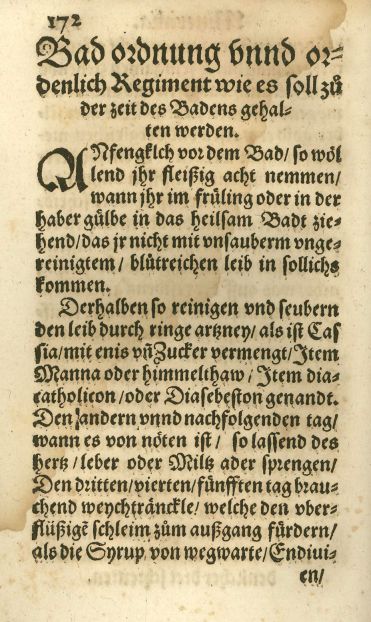 172
Bad ordnung vnnd or⸗
denlich Regiment wie es soll zů
der zeit des Badens gehal⸗
ten werden.
ANfengklch vor dem Bad/ so wöl
lend jhr fleißig acht nemmen/
wann jhr im früling oder in der
haber gülbe in das heilsam Badt zie⸗
hend/ das jr nicht mit vnsauberm vnge⸗
reinigtem/ blůtreichen leib in sollichs
kommen.
Derhalben so reinigen vnd seubern
den leib durch ringe artzney/ als ist Cas
sia/ mit enis vñ Zucker vermengt/ Item
Manna oder himmelthaw/ Item dia⸗
catholicon/ oder Diasebeston genandt.
Den andern vnnd nachfolgenden tag/
wann es von nöten ist/ so lassend des
hertz/ leber oder Miltz ader sprengen/
Den dritten/ vierten/ fünfften tag brau⸗
chend weychtränckle/ welche den vber⸗
flüßigẽ schleim zům außgang fürdern/
als die Syrup von wegwarte/ Endiui⸗
en/